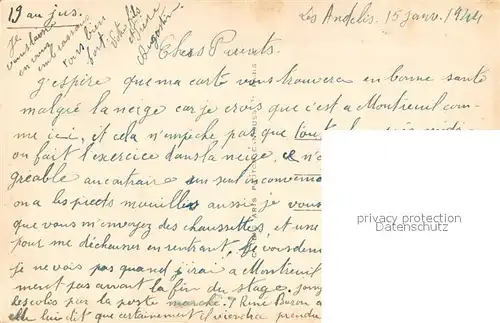 19 au jus.
Les Andelys. 15 janv. 1944
Je vous laisse
en vous embrassant
tous bien
fort. Votre fils
Auguste
Chers Parents.
J'espère que ma carte vous trouvera en bonne santé
malgré la neige car je crois que c'est a Montreuil com-
me ici, et cela n'empêche pas que tous les
on fait l'exercice dans la neige, ce n'e
gréable au contraire un seul inconvénie
on a les pieds mouillés aussi je vous
que vous m'envoyez des chaussettes, et une
pour me déchausser en rentrant. Je vous dem
je ne vois pas quand j'irai a Montreuil
ment pas avant la fin du stage. J'en
des colis par la poste marche. / René Buron a
elle lui dit que certainement il viendra prendre
privacy protection
Datenschutz